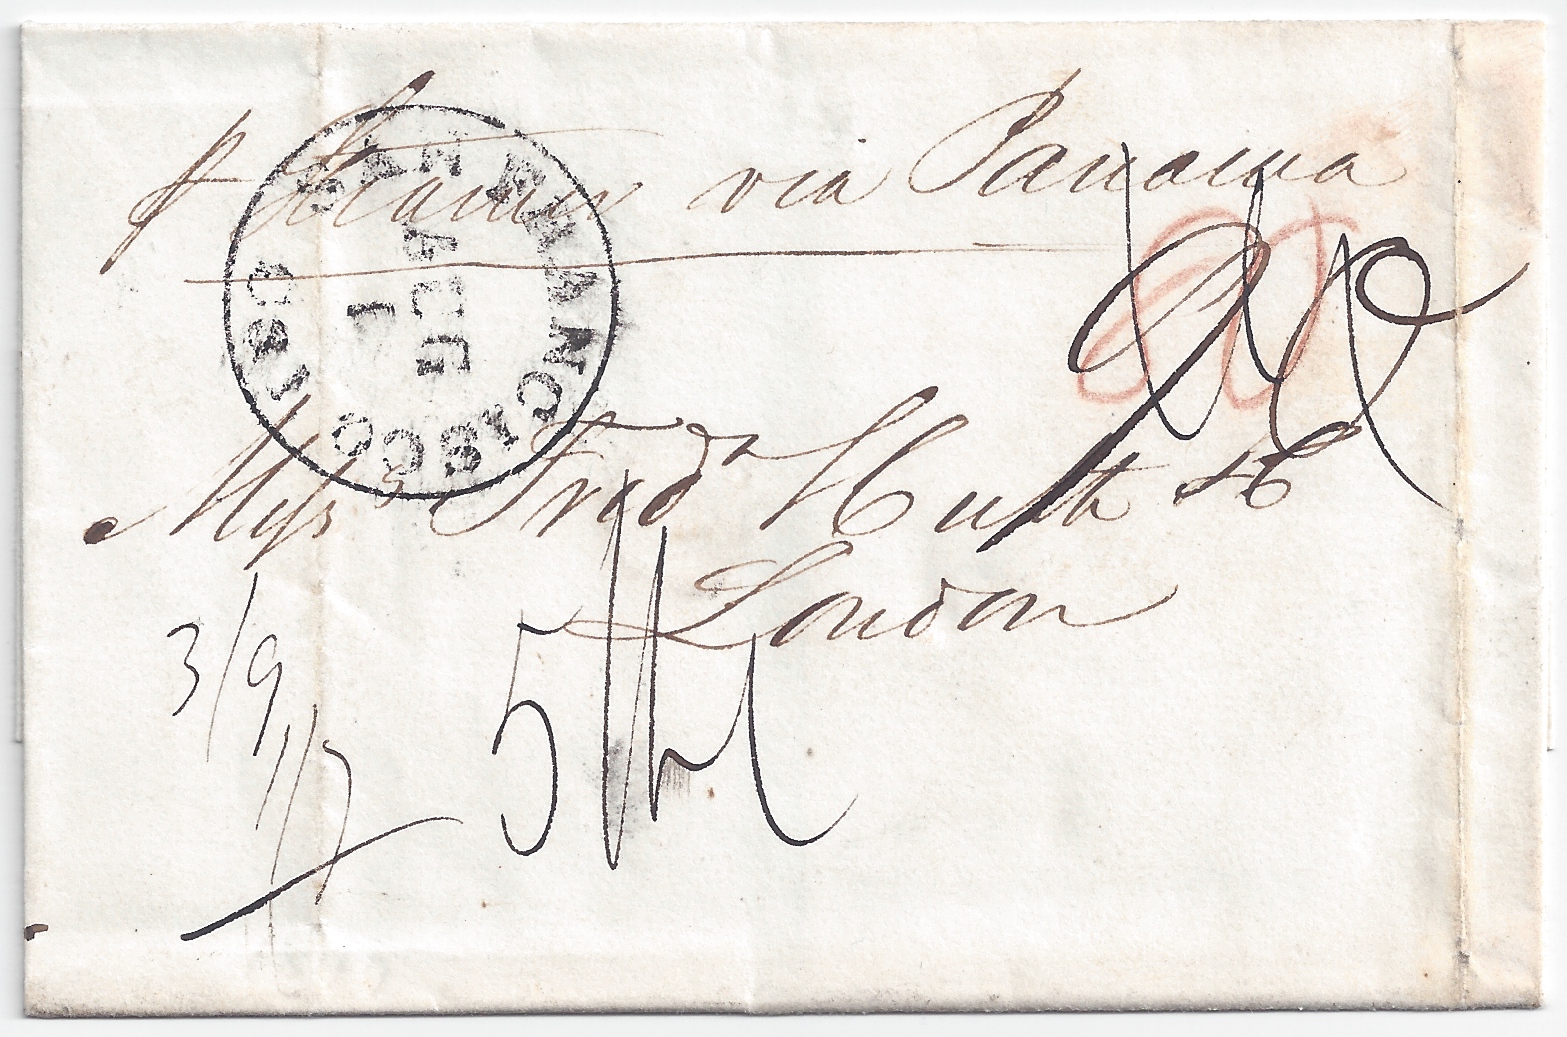 pr Steamer via Panama
SAN FRANCISCO Cal
APR
1
Messrs Fredk Huth & Co
London
3/9
1/7
5/4